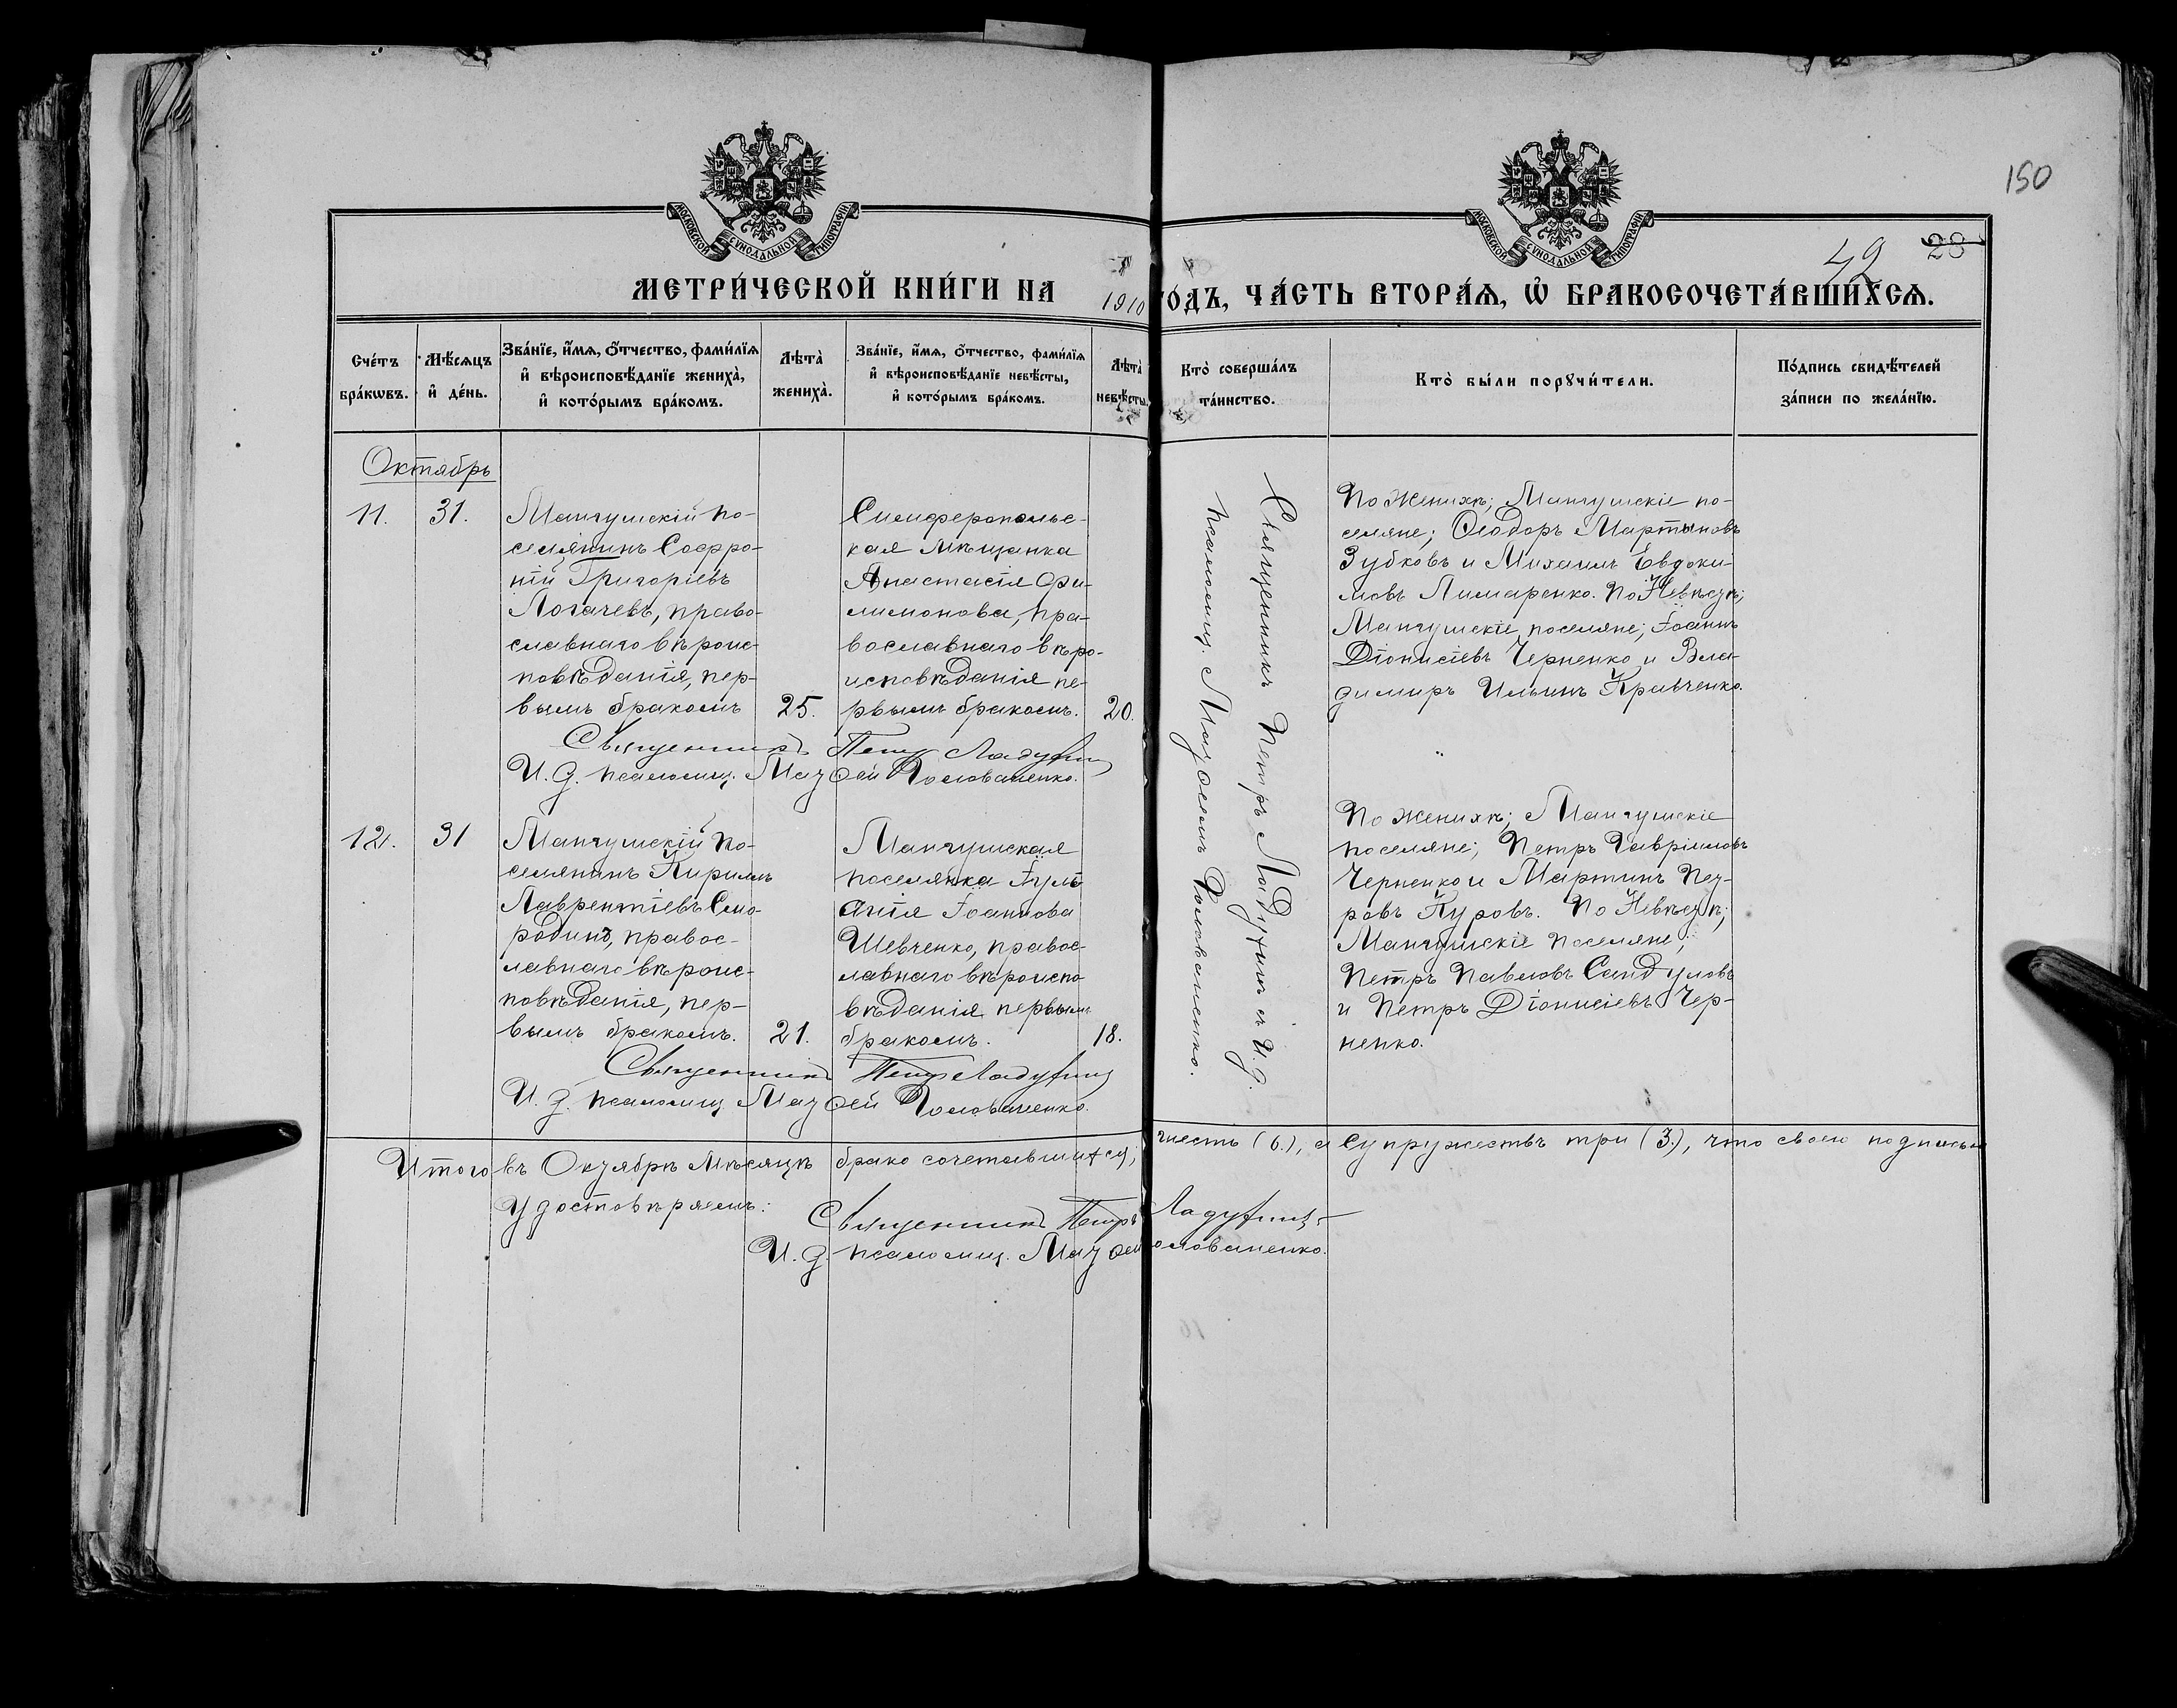 150
42 28
МОСКОВСКОЙ СѴНОДАЛЬНОЙ ТИПОГРАФІИ
МОСКОВСКОЙ СѴНОДАЛЬНОЙ ТИПОГРАФІИ
МЕТРИ́ЧЕСКОЙ КНИ́ГИ НА 1910 ГО́ДЪ, ЧА́СТЬ ВТОРА́Ѧ, Ѡ҆ БРАКОСОЧЕТА́ВШИХСѦ.
Сче́тъ бра́кѡвъ.
Мѣ́сѧцъ и҆ де́нь.
Зва́нїе, и҆́мѧ, ѻ҆́тчество, фами́лїѧ
и҆ вѣроисповѣ́данїе жениха̀,
и҆ кото́рымъ бра́комъ.
Лѣта̀ жениха̀.
Зва́нїе, и҆́мѧ, ѻ҆́тчество, фами́лїѧ
и҆ вѣроисповѣ́данїе невѣ́сты,
и҆ кото́рымъ бра́комъ.
Лѣта̀ невѣ́сты.
Кто̀ соверша́лъ
та́инство.
Кто̀ бы́ли порꙋчи́тели.
По́дпись свидѣ́телей
за́писи по жела́нїю.
Октябрь
11.
31.
Мангушскій по-
селянинъ Софро-
ній Григоріевъ
Логачевъ, право-
славнаго вѣроис-
повѣданія, пер-
вымъ бракомъ
25.
Симферопольс-
кая мѣщанка
Анастасія Фи-
лимонова, пра-
вославнаго вѣро-
исповѣданія пе-
рвымъ бракомъ.
20.
Священникъ Петръ Ладухинъ съ И. д.
псаломщ. Моѳеемъ Головаченко.
По женихѣ; Мангушскіе по-
селяне; Ѳеодоръ Мартыновъ
Зубковъ и Михаилъ Евдоки-
мовъ Лимаренко. По Невѣстѣ;
Мангушскіе поселяне; Іоаннъ
Діонисіевъ Черненко и Вла-
димиръ Ильинъ Кравченко.
Священникъ Петръ Ладухинъ
И. д. псаломщ. Матѳей Головаченко.
12.
31
Мангушскій по-
селянинъ Кириллъ
Лаврентіевъ Смо-
родинъ, правос-
лавнаго вѣроис-
повѣданія, пер-
вымъ бракомъ.
21.
Мангушская
поселянка Іулі
анія Іоаннова
Шевченко, правос-
лавнаго вѣроиспо
вѣданія первымъ
бракомъ.
18.
По женихѣ; Мангушскіе
поселяне; Петръ Гавріиловъ
Черненко и Мартинъ Пет-
ровъ Куровъ. По Невѣстѣ;
Мангушскіе поселяне;
Петръ Павловъ Сандуловъ
и Петръ Діонисіевъ Чер-
ненко.
Священникъ Петръ Ладухинъ
И. д. псаломщ Матѳей Головаченко.
Итого въ Октябрѣ мѣсяцѣ брако сочетавшихся; шесть (6.), а супружествъ три (3.), что своею подписью
удостовѣряемъ:
Священникъ Петръ Ладухинъ
И. д. псаломщ. Матѳей Головаченко.